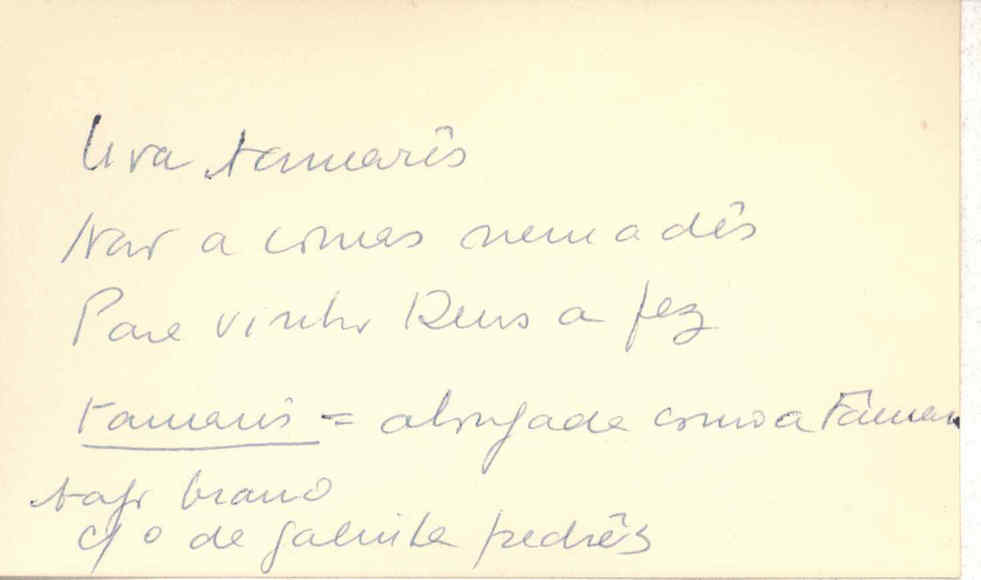 Uva tamarês
Não a comas nem a dês
Para vinho Deus a fez
tamarês = alongada como a tâmara
c/ o de galinha pedrês